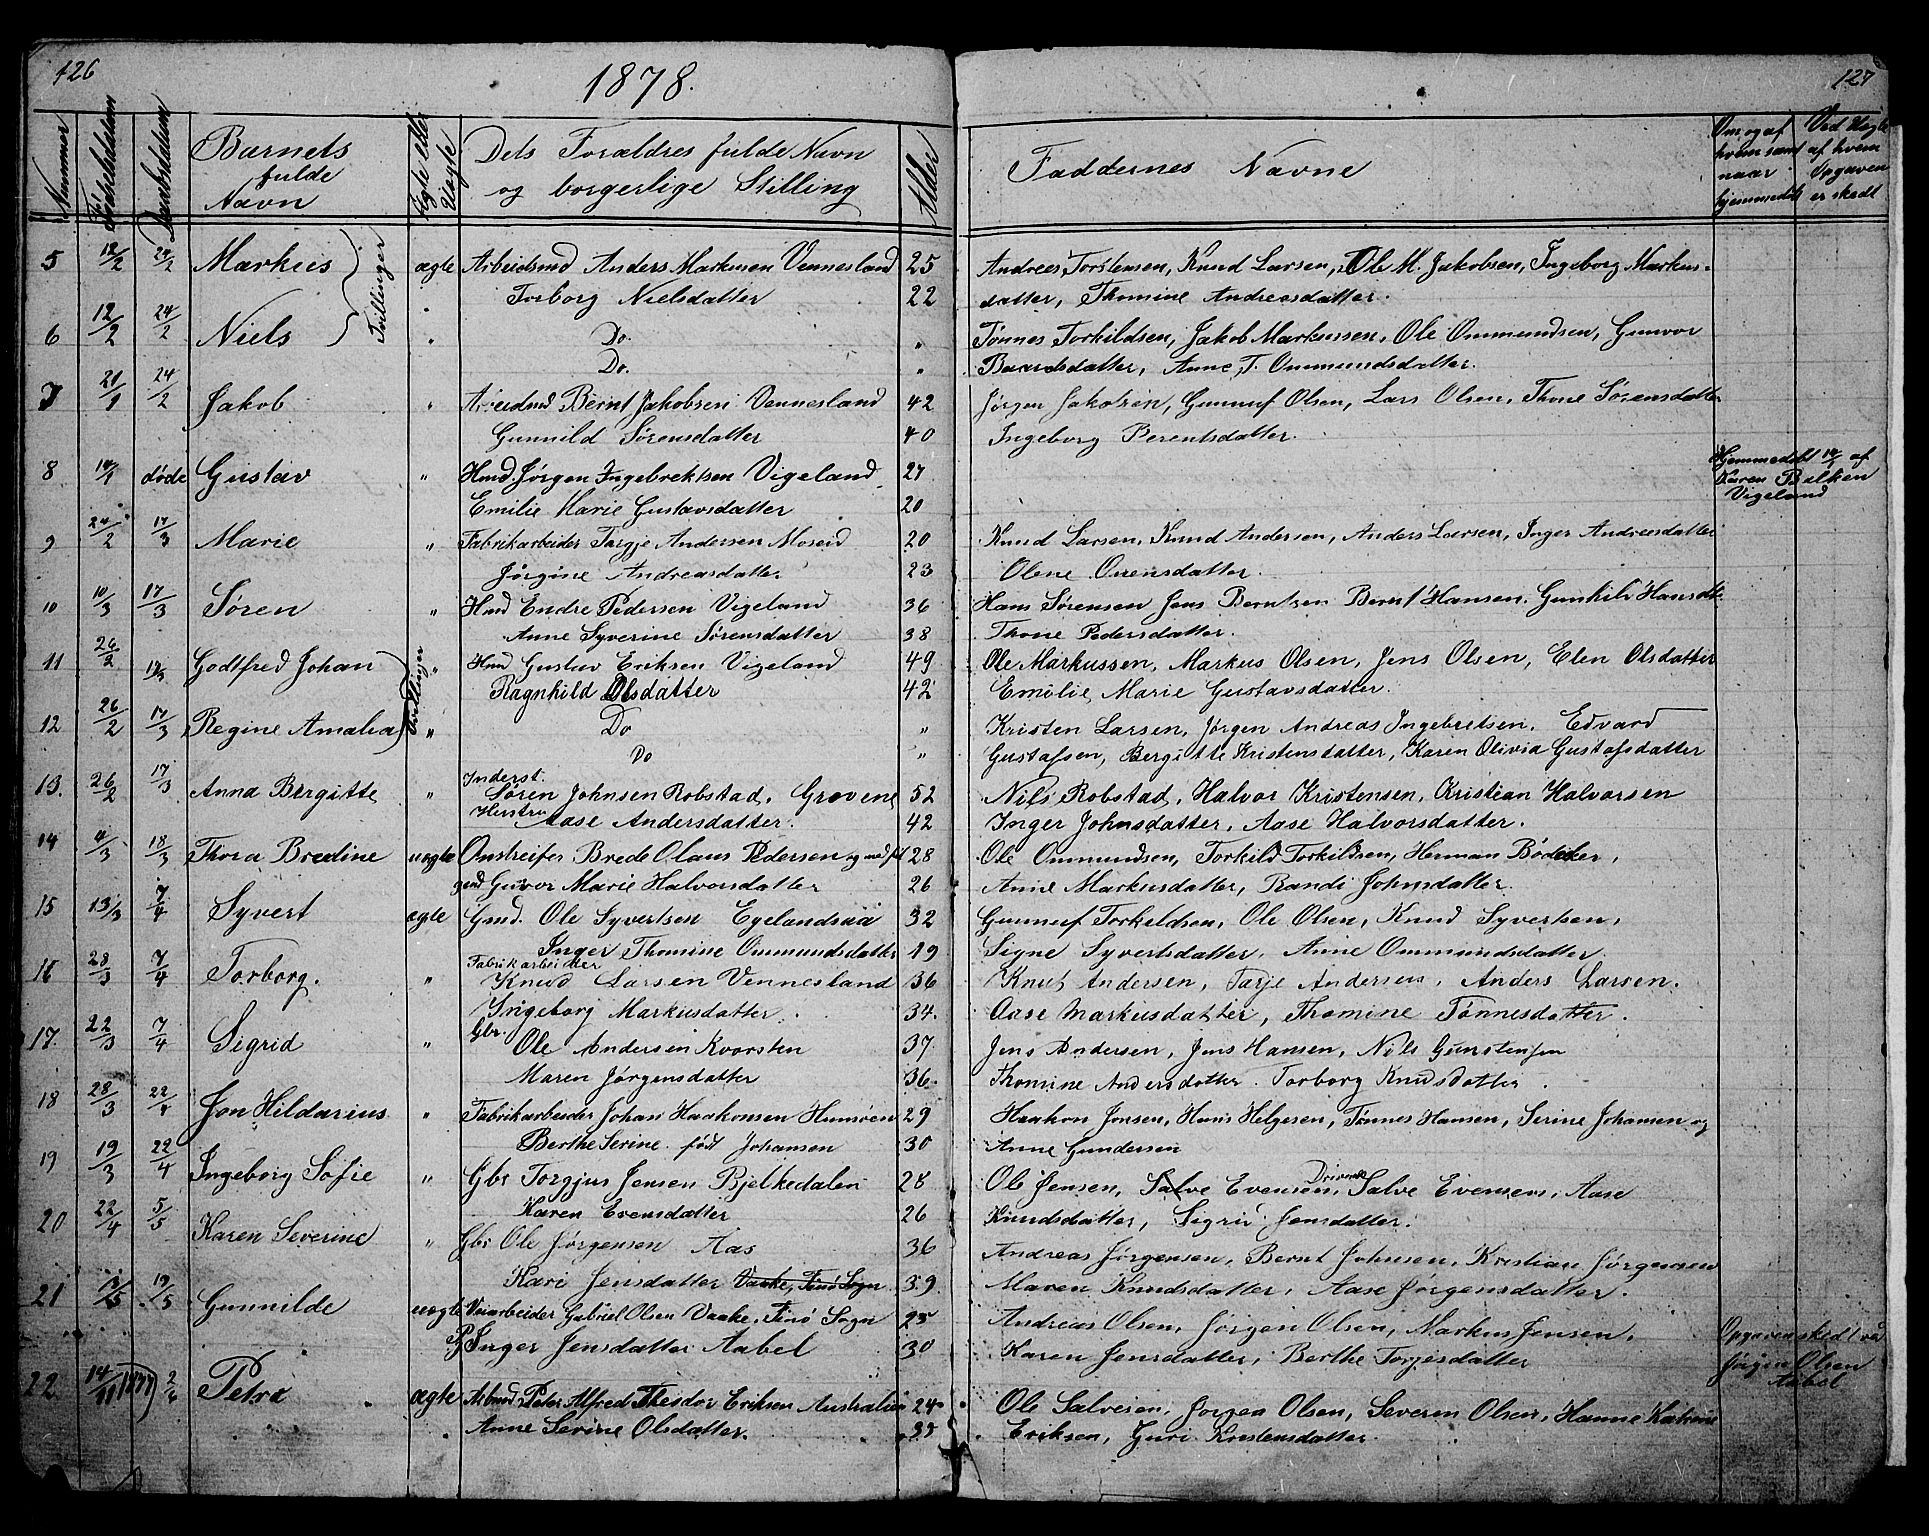 126
1878.
127
Nummer
Fødselsdatum
Daabsdatum
Barnets fulde Navn
Ægte eller Uægte
Dets Forældres fulde Navn og borgerlige Stilling
Alder
Faddernes Navne
Om og af hvem samt naar hjemmedøbt
Ved Uægte af hvem Opgaven er skedt
5 12/2 24/2 Markus ægte Arbeidsmd Anders Markusen Vennesland 25 Andreas Torstensen, Knud Larsen, Ole M. Jakobsen, Ingeborg Markus-
Tvillinger
Torborg Nielsdatter 22 datter, Thomine Andreasdatter.
6 12/2 24/2 Niels " Do. " Tønnes Torkildsen, Jakob Markussen, Ole Ommundsen, Gunvor
Do. " Baardsdatter, Anne T. Ommundsdatter.
7 21/1 24/2 Jakob " Arbeidmd Bernt Jakobsen Vennesland 42 Jørgen Jakobsen, Gunnuf Olsen, Lars Olsen, Thone Sørensdatter
Gunnild Sørensdatter 40 Ingeborg Berentsdatter.
8 14/1 døde Gustav " Hmd. Jørgen Ingebrektsen Vigeland 27 Hjemmedøbt 14/1 af
Karen Balken
Emilie Marie Gustavsdatter 20 Vigeland
9 24/2 17/3 Marie " Fabrikarbeider Targje Andersen Moseid 20 Knud Larsen, Knud Andersen, Anders Larsen, Inger Andreasdatter
Jørgine Andreasdatter 23 Olene
10 10/3 17/3 Søren " Hmd Endre Pedersen Vigeland 36 Hans Sørensen Jens Berntsen Bernt Hansen. Gunhild Hansdt
Anne Syverine Sørensdatter 38 Thone Pedersdatter.
11 26/2 17/3 Godtfred Johan " Hmd Gustav Eriksen Vigeland 49 Ole Markussen, Markus Olsen, Jens Olsen, Elen Olsdatter
Tvillinger
Ragnhild Olsdatter 42 Emilie Marie Gustavsdatter.
12 26/2 17/3 Regine Amalia " Do " Kristen Larsen, Jørgen Andreas Ingebretsen, Edvard
Do " Gustafsen, Bergitte Kristensdatter, Karen Olivia Gustafsdatter
13. 26/2 17/3 Anna Birgitte " Inderst.
Søren Johnsen Robstad. Grovene 52 Nils Robstad, Halvor Kristensen, Kristian Halvorsen
Hustru Aase Andersdatter. 42 Inger Johnsdatter, Aase Halvorsdatter.
14 4/3 18/3 Thora Bredine uægte Omstreifer Brede Olaus Pedersen og med føl 28 Ole Ommundsen, Torkild Torkildsen, Herman Bødeker,
gend Guror Marie Halvorsdatter 26 Anne Markusdatter, Randi Johnsdatter.
15 13/3 7/4 Syvert ægte Gmd. Ole Syvertsen Egelandsaa 32 Gunnuf Torkeldsen, Ole Olsen, Knud Syvertsen,
Inger Thomine Ommundsdatter 19 Signe Syvertsdatter, Anne Ommundsdatter.
16 28/3 7/4 Torborg. " Fabrikarbeider
Knud Larsen Vennesland 36 Knut Andersen, Tarje Andersen, Anders Larsen.
Ingeborg Markusdatter 34. Aase Markusdatter, Thomine Tønnesdatter.
17. 22/3 7/4 Sigrid " Gbr.
Ole Andersen Kvorsten 37 Jens Andersen, Jens Hansen, Nils Gunstensen
Maren Jørgensdatter 36. Thomine Andersdatter. Torborg Knudsdatter.
18 28/3 22/4 Jon Hildarius " Fabrikarbeider Johan Haakonsen Hunsøen 29 Haakon Jonsen, Hans Helgesen, Tønnes Hansen, Serine Johansen og
Berthe Serine født Johansen 30 Anne Gundersen
19 19/3 22/4 Ingeborg Sofie " Gbr Torgjus Jensen Bjelkedalen 28 Ole Jensen, Salve Evensen, Drivenes Salve Evensen, Aase
Karen Evensdatter 26 Knudsdatter, Sigrid Jensdatter.
20 22/4 5/5 Karen Severine " Gbr Ole Jørgensen Aas 36 Andreas Jørgensen, Bernt Johnsen, Kristian Jørgensen
Kari Jensdatter Vaake, Finø Sogn 39. Maren Knudsdatter, Aase Jørgensdatter.
21 13/5 19/5 Gunnilde uægte Veiarbeider Gabriel Olsen Vaake, Finø Sogn 25 Andreas Olsen, Jørgen Olsen, Markus Jensen,
Pg Inger Jensdatter Aabel 30 Karen Jensdatter, Berthe Torjesdatter
Opgaven skedt ved
Jørgen Olsen
Aabel
22 14/11 1877) 2/6 Petra ægte Arbmd Peter Alfred Theodor Eriksen Australien 24 Ole Salvesen, Jørgen Olsen, Severin Olsen, Hanne Katrine
Anne Serine Olsdatter. Eriksen, Guri Kristensdatter.